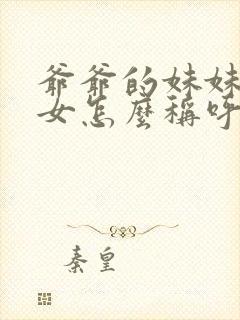 爺爺的妹妹
女怎麼稱呼
秦皇